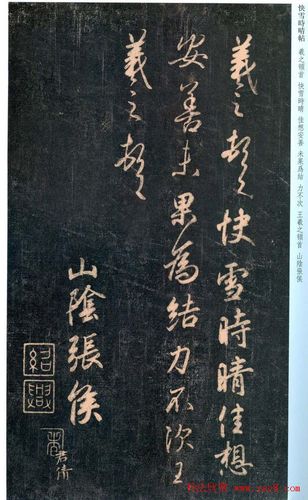 快雪時晴帖 羲之頓首 快雪時晴 佳想安善 未果為結 力不次 王羲之頓首 山陰張侯
羲之頓首快雪時晴佳想
安善未果為結力不次王
羲之頓首
山陰張侯
紹興
君倩
www.yac8.com